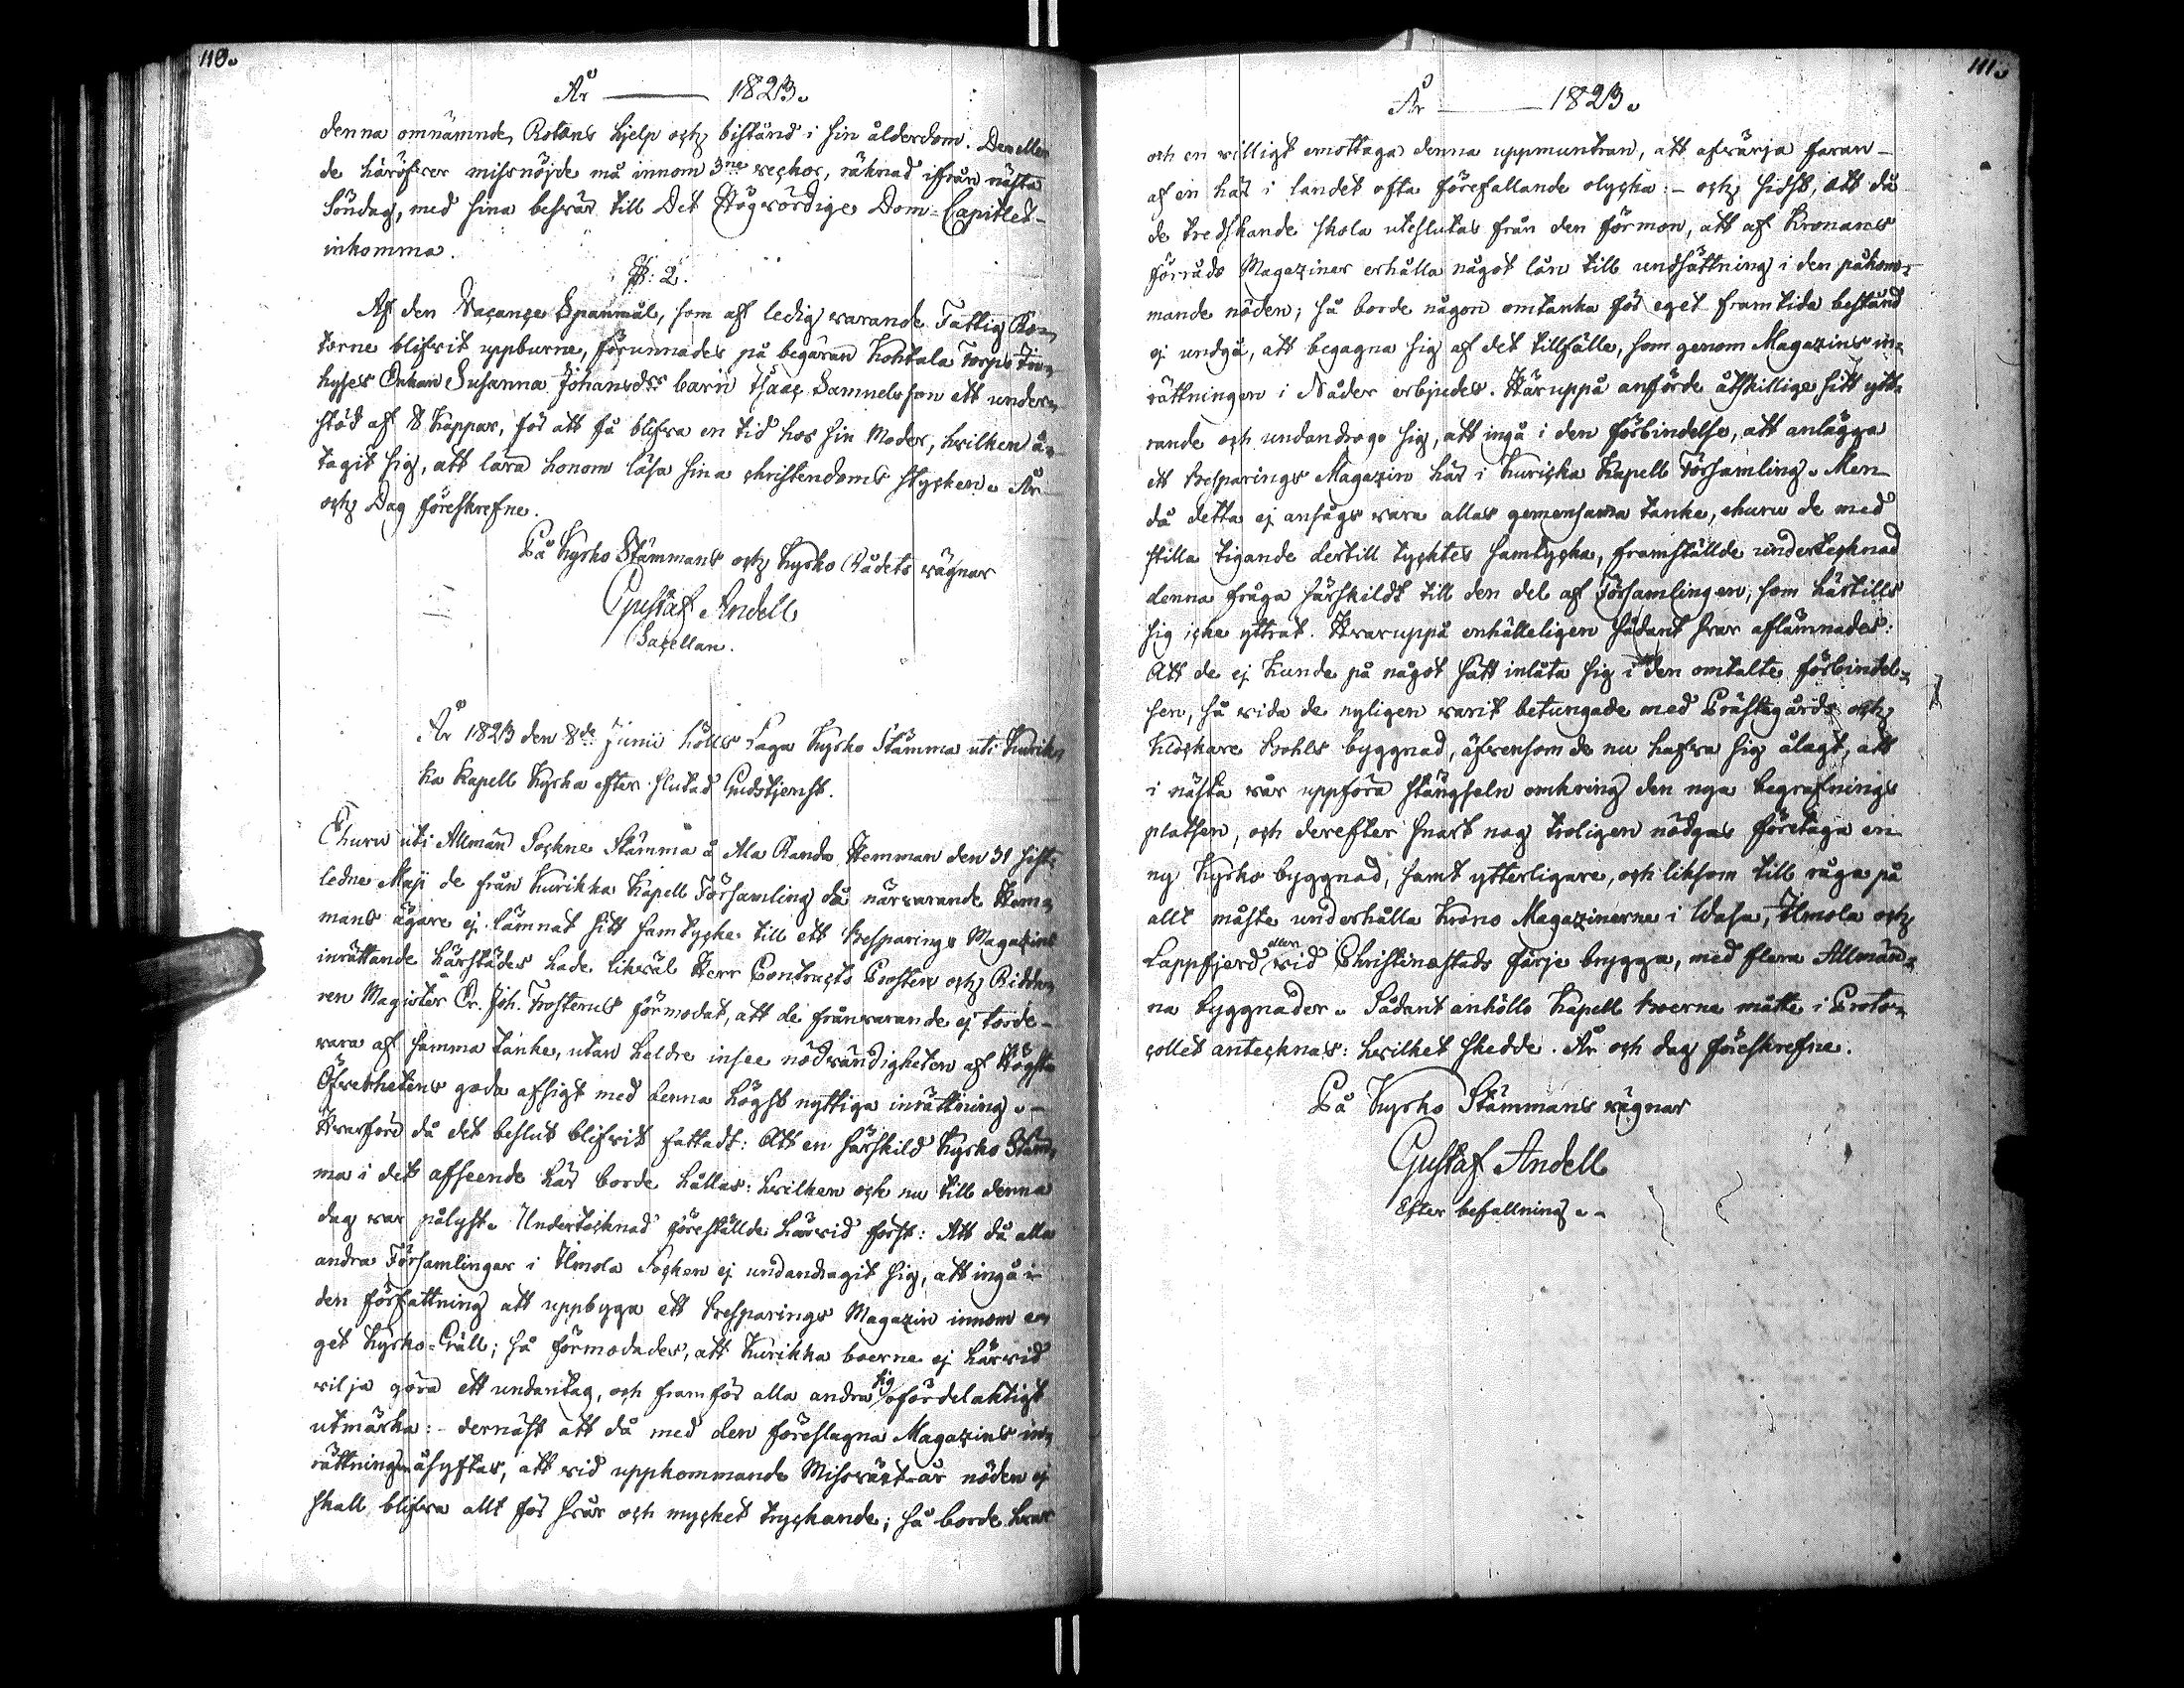 110.
År ——— 1823.
denna omnämnde Rotens hjelp och bistånd i sin ålderdom. Den eller
de häröfver missnöjde må innom 3ne veckor, räknad ifrån nästa
Söndag, med sina besvär till Det Högvördige Dom-Capitlet
inkomma.
§: 2.
Af den Vacance Spanmål, som af ledig varande Fattig Ro-
torne blifvit uppburne, förunnades på begäran Kohtala Torps In-
hyses Enkan Susanna Johansdrs barn Isaac Samuelsson ett under-
stöd af 8 Kappar, för att få blifva en tid hos sin Moder, hvilken å-
tagit sig, att lära honom läsa sina christendoms stycken. År
och Dag föreskrefne.
På Kyrko Stämmans och Kyrko Rådets vägnar
Gustaf Andell
Sacellan.
År 1823 den 8de Junii hölls Laga Kyrko Stämma uti Kurik-
ka Kapell Kyrka efter slutad Gudstjenst.
Ehuru uti Allmän Sockne Stämma å Ala Randa Hemman den 31 sist-
ledne Maji de från Kurikka Kapell Församling då närvarande Hem-
mans ägare ej lämnat sitt samtycke till ett besparings Magazins
inrättande härstädes hade likväl Herr Contracts Prosten och Ridda-
ren Magister Er. Joh. Frosterus förmodat, att de frånvarande ej torde
vara af samma tanke, utan heldre insee nödvändigheten af Högsta
Öfverhetens goda afsigt med denna högst nyttiga inrättning. –
Hvarföre då det beslut blifvit fattadt: Att en särskild Kyrko Stäm-
ma i det afseende här borde hållas: hvilken ock nu till denna
dag var pålyst. Undertecknad föreställde härvid först: Att då alla
andra Församlingar i Ilmola Socken ej undandragit sig, att ingå i
den författning att uppbygga ett besparings Magazin innom e-
get Kyrko-Gäll; så förmodades, att Kurikka boerne ej härvid
vilja göra ett undantag, och framför alla andra sig ofördelaktigt
utmärka: – dernäst att då med den föreslagna Magazins in-
rättningen åsyftas, att vid uppkommande Missväxt-år nöden ej
skall blifva allt för svår och mycket tryckande; så borde hvar
111.
År ——— 1823.
och en villigt emottaga denna uppmuntran, att afvärja faran
af en här i landet ofta förefallande olycka: – och sidst, att då
de tredskande skola uteslutas från den förmon, att af Kronans
förråds Magaziner erhålla något lån till undsättning i den påkom-
mande nöden; så borde någon omtanka för eget framtida bestånd
ej undgå, att begagna sig af det tillfälle, som genom Magazins in-
rättningen i Nåder erbjudes. Häruppå anförde åtskillige sitt ytt-
rande och undandrogo sig, att ingå i den förbindelse, att anlägga
ett besparings Magazin här i Kuricka Kapell Församling. Men
då detta ej ansågs vara allas gemensama tanke, ehuru de med
stilla tigande dertill tycktes samtycka, framställde undertecknad
denna fråga särskildt till den del af Församlingen, som härtills
sig icke yttrat. Hvaruppå enhälleligen sådant svar aflämnades:
Att de ej kunde på något sätt inlåta sig i den omtalte förbindel-
sen, så vida de nyligen varit betungade med Prästegårds och
Klockare Bohls byggnad, äfvensom de nu hafva sig ålagt, att
i nästa vår uppföra stängseln omkring den nya begrafnings
platsen, och derefter snart nog troligen nödgas företaga en
ny Kyrko byggnad, samt ytterligare, och liksom till råga på
allt måste underhålla Krono Magazinerne i Wasa, Ilmola och
Lappfjerd eller vid Christinæstads färje brygga, med flera Allmän-
na byggnader. Sådant anhöllo Kapell boerne måtte i Proto-
collet antecknas: hvilket skedde. År och dag föreskrefne.
På Kyrko Stämmans vägnar
Gustaf Andell
Efter befallning. –